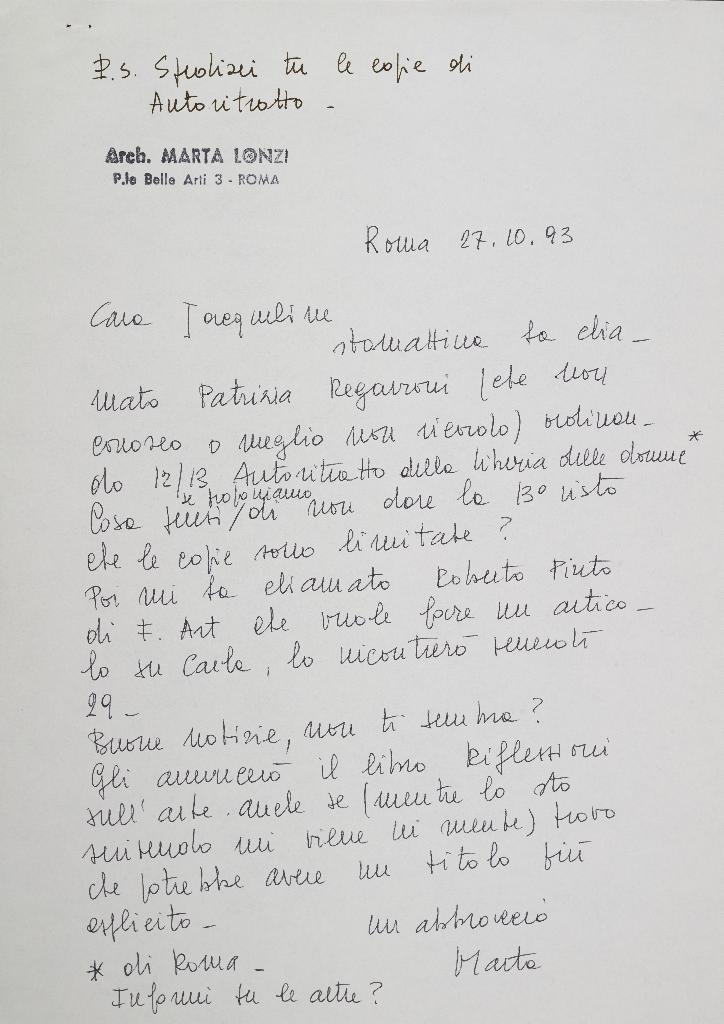 P.S. Spedisci tu le copie di
Autoritratto -
Arch. MARTA LONZI
P.le Belle Arti 3 - ROMA
Roma 27.10.93
Cara Jacqueline
stamattina ha chia-
mato Patrizia Regazzoni (che non
conosco o meglio non ricordo) ordinan-
do 12/13 Autoritratto della libreria delle donne *
se proponiamo
Cosa pensi / di non dare la 13° visto
che le copie sono limitate?
Poi mi ha chiamato Roberto Pinto
di F. Art che vuole fare un artico-
lo su Carla, lo incontrerò venerdì
29 -
Buone notizie, non ti sembra?
Gli annuncerò il libro Riflessioni
sull'arte. anche se (mentre lo sto
scrivendo mi viene in mente) trovo
che potrebbe avere un titolo più
esplicito -
un abbraccio
Marta
* di Roma -
Informi tu le altre?